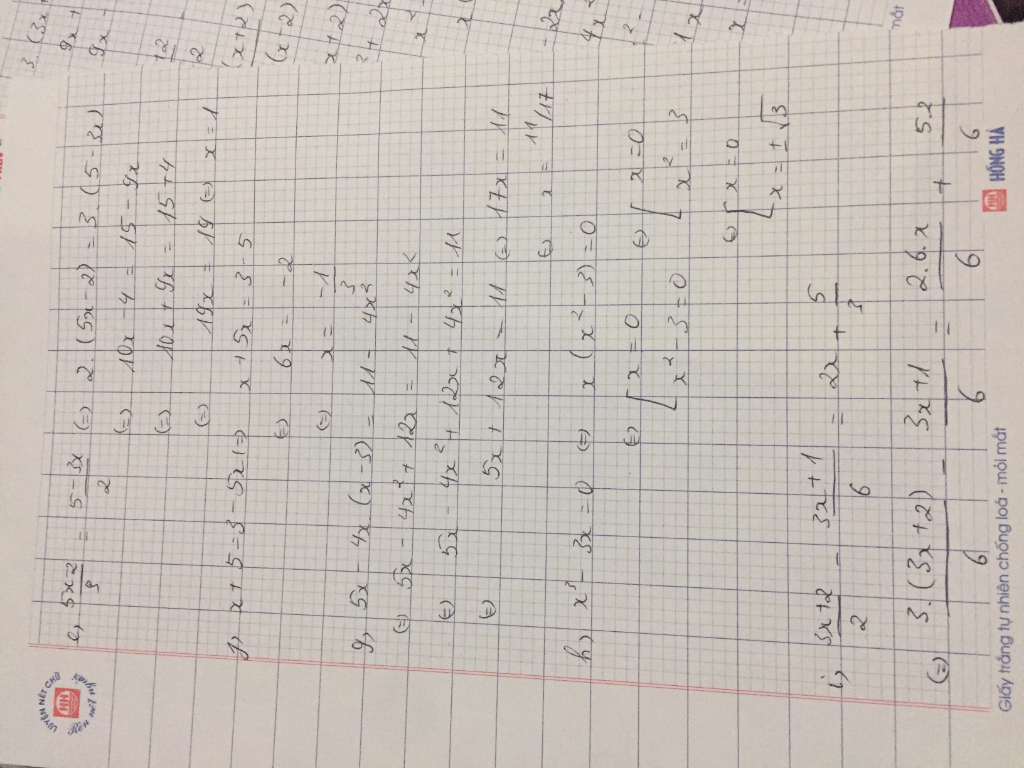 LUYỆN NÉT CHỮ
e, 5x-2/3 = 5-3x/2 (=) 2.(5x-2) = 3.(5-3x)
(=) 10x - 4 = 15 - 9x
(=) 10x + 9x = 15 + 4
(=) 19x = 19 (=) x = 1
x + 5 = 3 - 5x (=) x + 5x = 3 - 5
(=) 6x = -2
(=) x = -1/3
g, 5x - 4x(x-3) = 11 - 4x²
(=) 5x - 4x² + 12x = 11 - 4x²
(=) 5x - 4x² + 12x + 4x² = 11
(=) 5x + 12x = 11 (=) 17x = 11
(=) x = 11/17
h, x³ - 3x = 0 (=) x(x² - 3) = 0
(=) [ x = 0 (=) [ x = 0
x² - 3 = 0 x² = 3
(=) [ x = 0
x = ±√3
i, 3x+2/2 - 3x+1/6 = 2x + 5/3
(=) 3.(3x+2)/6 - 3x+1/6 = 2.6.x/6 + 5.2/6
Giấy trắng tự nhiên chống loá - mỏi mắt
HỒNG HÀ